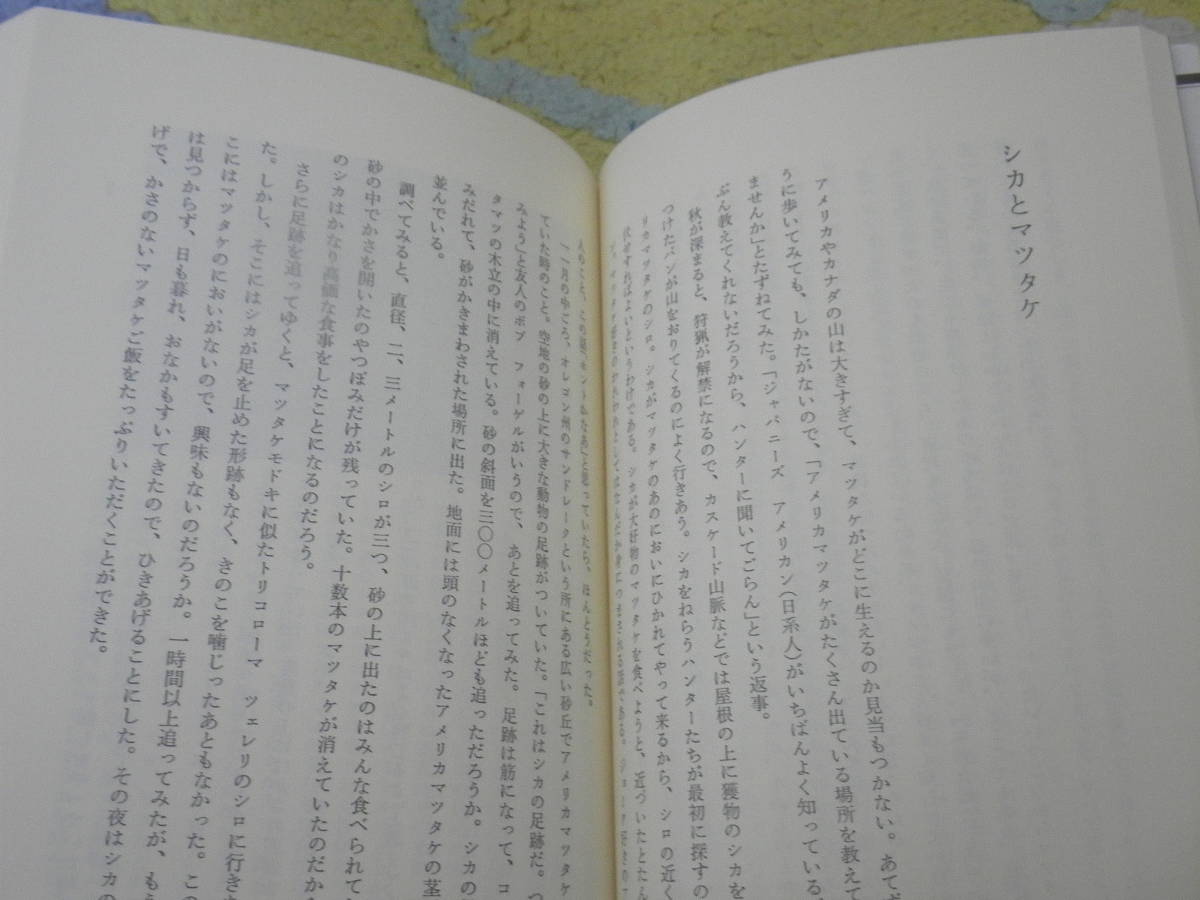 シカとマツタケ
アメリカやカナダの山は大きすぎて、マツタケがどこに生えるのか見当もつかない。あてず
うに歩いてみても、しかたがないので、「アメリカマツタケがたくさん出ている場所を教えて
ませんか」とたずねてみた。「ジャパニーズ アメリカン(日系人)がいちばんよく知っている。
ぶん教えてくれないだろうから、ハンターに聞いてごらん」という返事。
秋が深まると、狩猟が解禁になるので、カスケード山脈などでは屋根の上に獲物のシカを
つけたバンが山をおりてくるのによく行きあう。シカをねらうハンターたちが最初に探すの
リカマツタケのシロ。シカがマツタケのあのにおいにひかれてやって来るから、シロの近く
伏せすればよいというわけである。シカが大好物のマツタケを食べようと、近づいたとたん
ていた時のこと。空地の砂の上に大きな動物の足跡がついていた。「これはシカの足跡だ。つ
一一月の中ごろ、オレゴン州のサンドレークという所にある広い砂丘でアメリカマツタケ
みよう」と友人のボブ フォーゲルがいうので、あとを追ってみた。足跡は筋になって、コ
タマツの木立の中に消えている。砂の斜面を三〇〇メートルほども追っただろうか。シカの
みだれて、砂がかきまわされた場所に出た。地面には頭のなくなったアメリカマツタケの茎
並んでいる。
調べてみると、直径、二、三メートルのシロが三つ、砂の上に出たのはみんな食べられて
砂の中でかさを開いたのやつぼみだけが残っていた。十数本のマツタケが消えていたのだか
のシカはかなり高価な食事をしたことになるのだろう。
さらに足跡を追ってゆくと、マツタケモドキに似たトリコローマ ツェレリのシロに行き
た。しかし、そこにはシカが足を止めた形跡もなく、きのこを嚙じったあともなかった。こ
こにはマツタケのにおいがないので、興味もないのだろうか。一時間以上追ってみたが、もう
は見つからず、日も暮れ、おなかもすいてきたので、ひきあげることにした。その夜はシカの
げで、かさのないマツタケご飯をたっぷりいただくことができた。